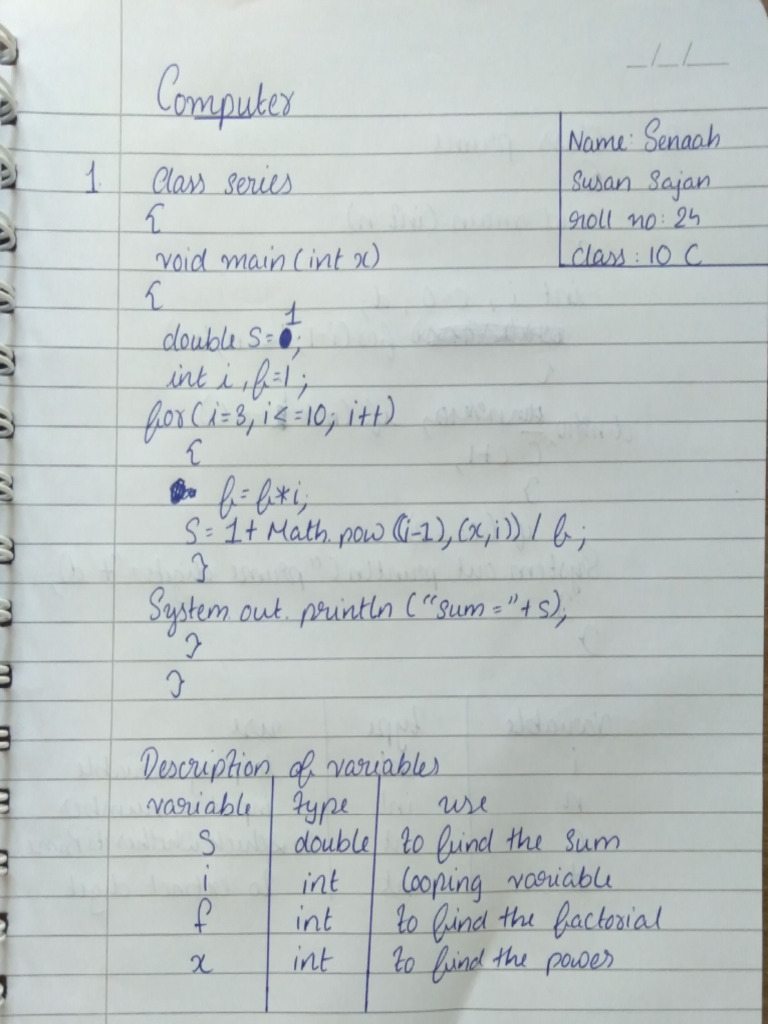 _/_/__
Computer
Name: Senaah
Susan Sajan
roll no: 24
class: 10 C
1. Class series
{
void main (int x)
{
double S=1;
int i, f=1;
for(i=3, i<=10; i++)
{
f= f*i;
S= 1+ Math. pow ((i-1), (x,i)) / f;
}
System. out. println ("sum =" + S);
}
}
Description of variables
variable type use
S double to find the sum
i int looping variable
f int to find the factorial
x int to find the power